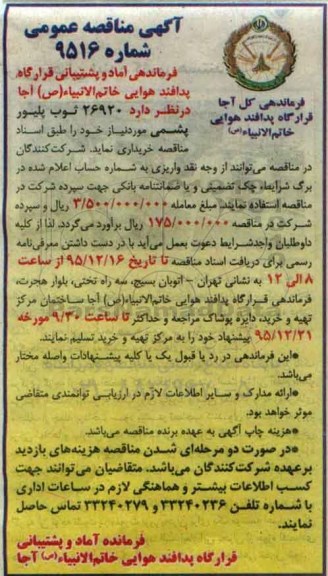 آگهی مناقصه عمومی
شماره ۹۵۱۶
فرماندهی کل آجا
قرارگاه پدافند هوایی
خاتم‌الانبیاء(ص)
فرماندهی آماد و پشتیبانی قرارگاه
پدافند هوایی خاتم‌الانبیاء(ص) آجا
درنظر دارد ۲۶۹۲۰ ثوب پلیور
پشمی موردنیاز خود را طبق اسناد
مناقصه خریداری نماید. شرکت‌کنندگان
در مناقصه می‌توانند از وجه نقد واریزی به شماره حساب اعلام شده در
برگ شرایط، چک تضمینی و یا ضمانتنامه بانکی جهت سپرده شرکت در
مناقصه استفاده نمایند. مبلغ معامله ۳/۵۰۰/۰۰۰/۰۰۰ ریال و سپرده
شرکت در مناقصه ۱۷۵/۰۰۰/۰۰۰ ریال برآورد می‌گردد. لذا از کلیه
داوطلبان واجدشرایط دعوت بعمل می‌آید با در دست داشتن معرفی‌نامه
رسمی برای دریافت اسناد مناقصه تا تاریخ ۹۵/۱۲/۱۶ از ساعت
۸ الی ۱۲ به نشانی تهران – اتوبان بسیج، سه راه تختی، بلوار هجرت،
فرماندهی قرارگاه پدافند هوایی خاتم‌الانبیاء(ص) آجا ساختمان مرکز
تهیه و خرید، دایره پوشاک مراجعه و حداکثر تا ساعت ۹/۳۰ مورخه
۹۵/۱۲/۲۱ پیشنهاد خود را به مرکز تهیه و خرید تسلیم نمایند.
•این فرماندهی در رد یا قبول یک یا کلیه پیشنهادات واصله مختار
می‌باشد.
•ارائه مدارک و سایر اطلاعات لازم در ارزیابی توانمندی متقاضی
موثر خواهد بود.
•هزینه چاپ آگهی به عهده برنده مناقصه می‌باشد.
•در صورت دو مرحله‌ای شدن مناقصه هزینه‌های بازدید
برعهده شرکت‌کنندگان می‌باشد. متقاضیان می‌توانند جهت
کسب اطلاعات بیشتر و هماهنگی لازم در ساعات اداری
با شماره تلفن ۳۳۲۴۰۲۳۶ و ۳۳۲۴۰۲۷۹ تماس حاصل
نمایند.
فرمانده آماد و پشتیبانی
قرارگاه پدافند هوایی خاتم‌الانبیاء(ص) آجا